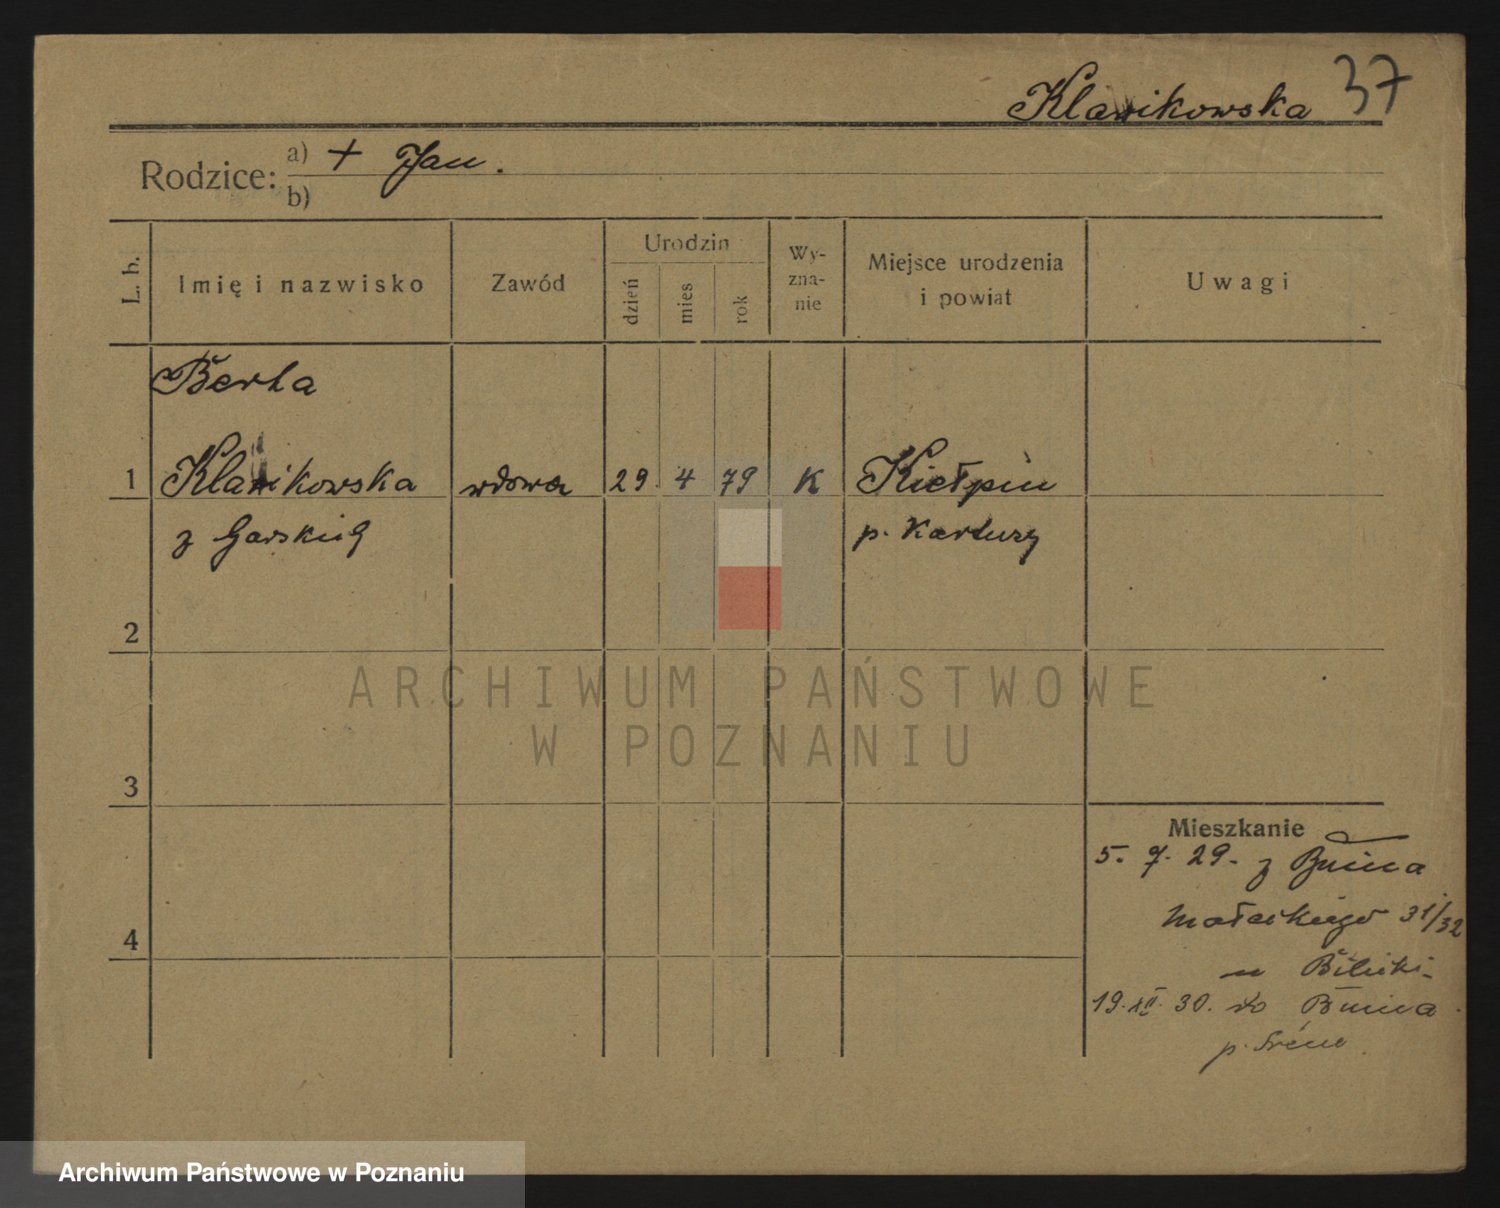 Klawikowska 37
Rodzice: a) + Jan.
b)
L. b. Imię i nazwisko Zawód Urodzin dzień mies rok Wy-zna-nie Miejsce urodzenia i powiat Uwagi
Berta
1 Klawikowska wdowa 29 4 79 K Kiełpin
z Garskich p. Kartuzy
2
3
4
Mieszkanie
5. 7. 29. z Bnina
Małeckiego 31/32
u
19. XII. 30. do Bnina
p. Śrem
ARCHIWUM PAŃSTWOWE
W POZNANIU
Archiwum Państwowe w Poznaniu